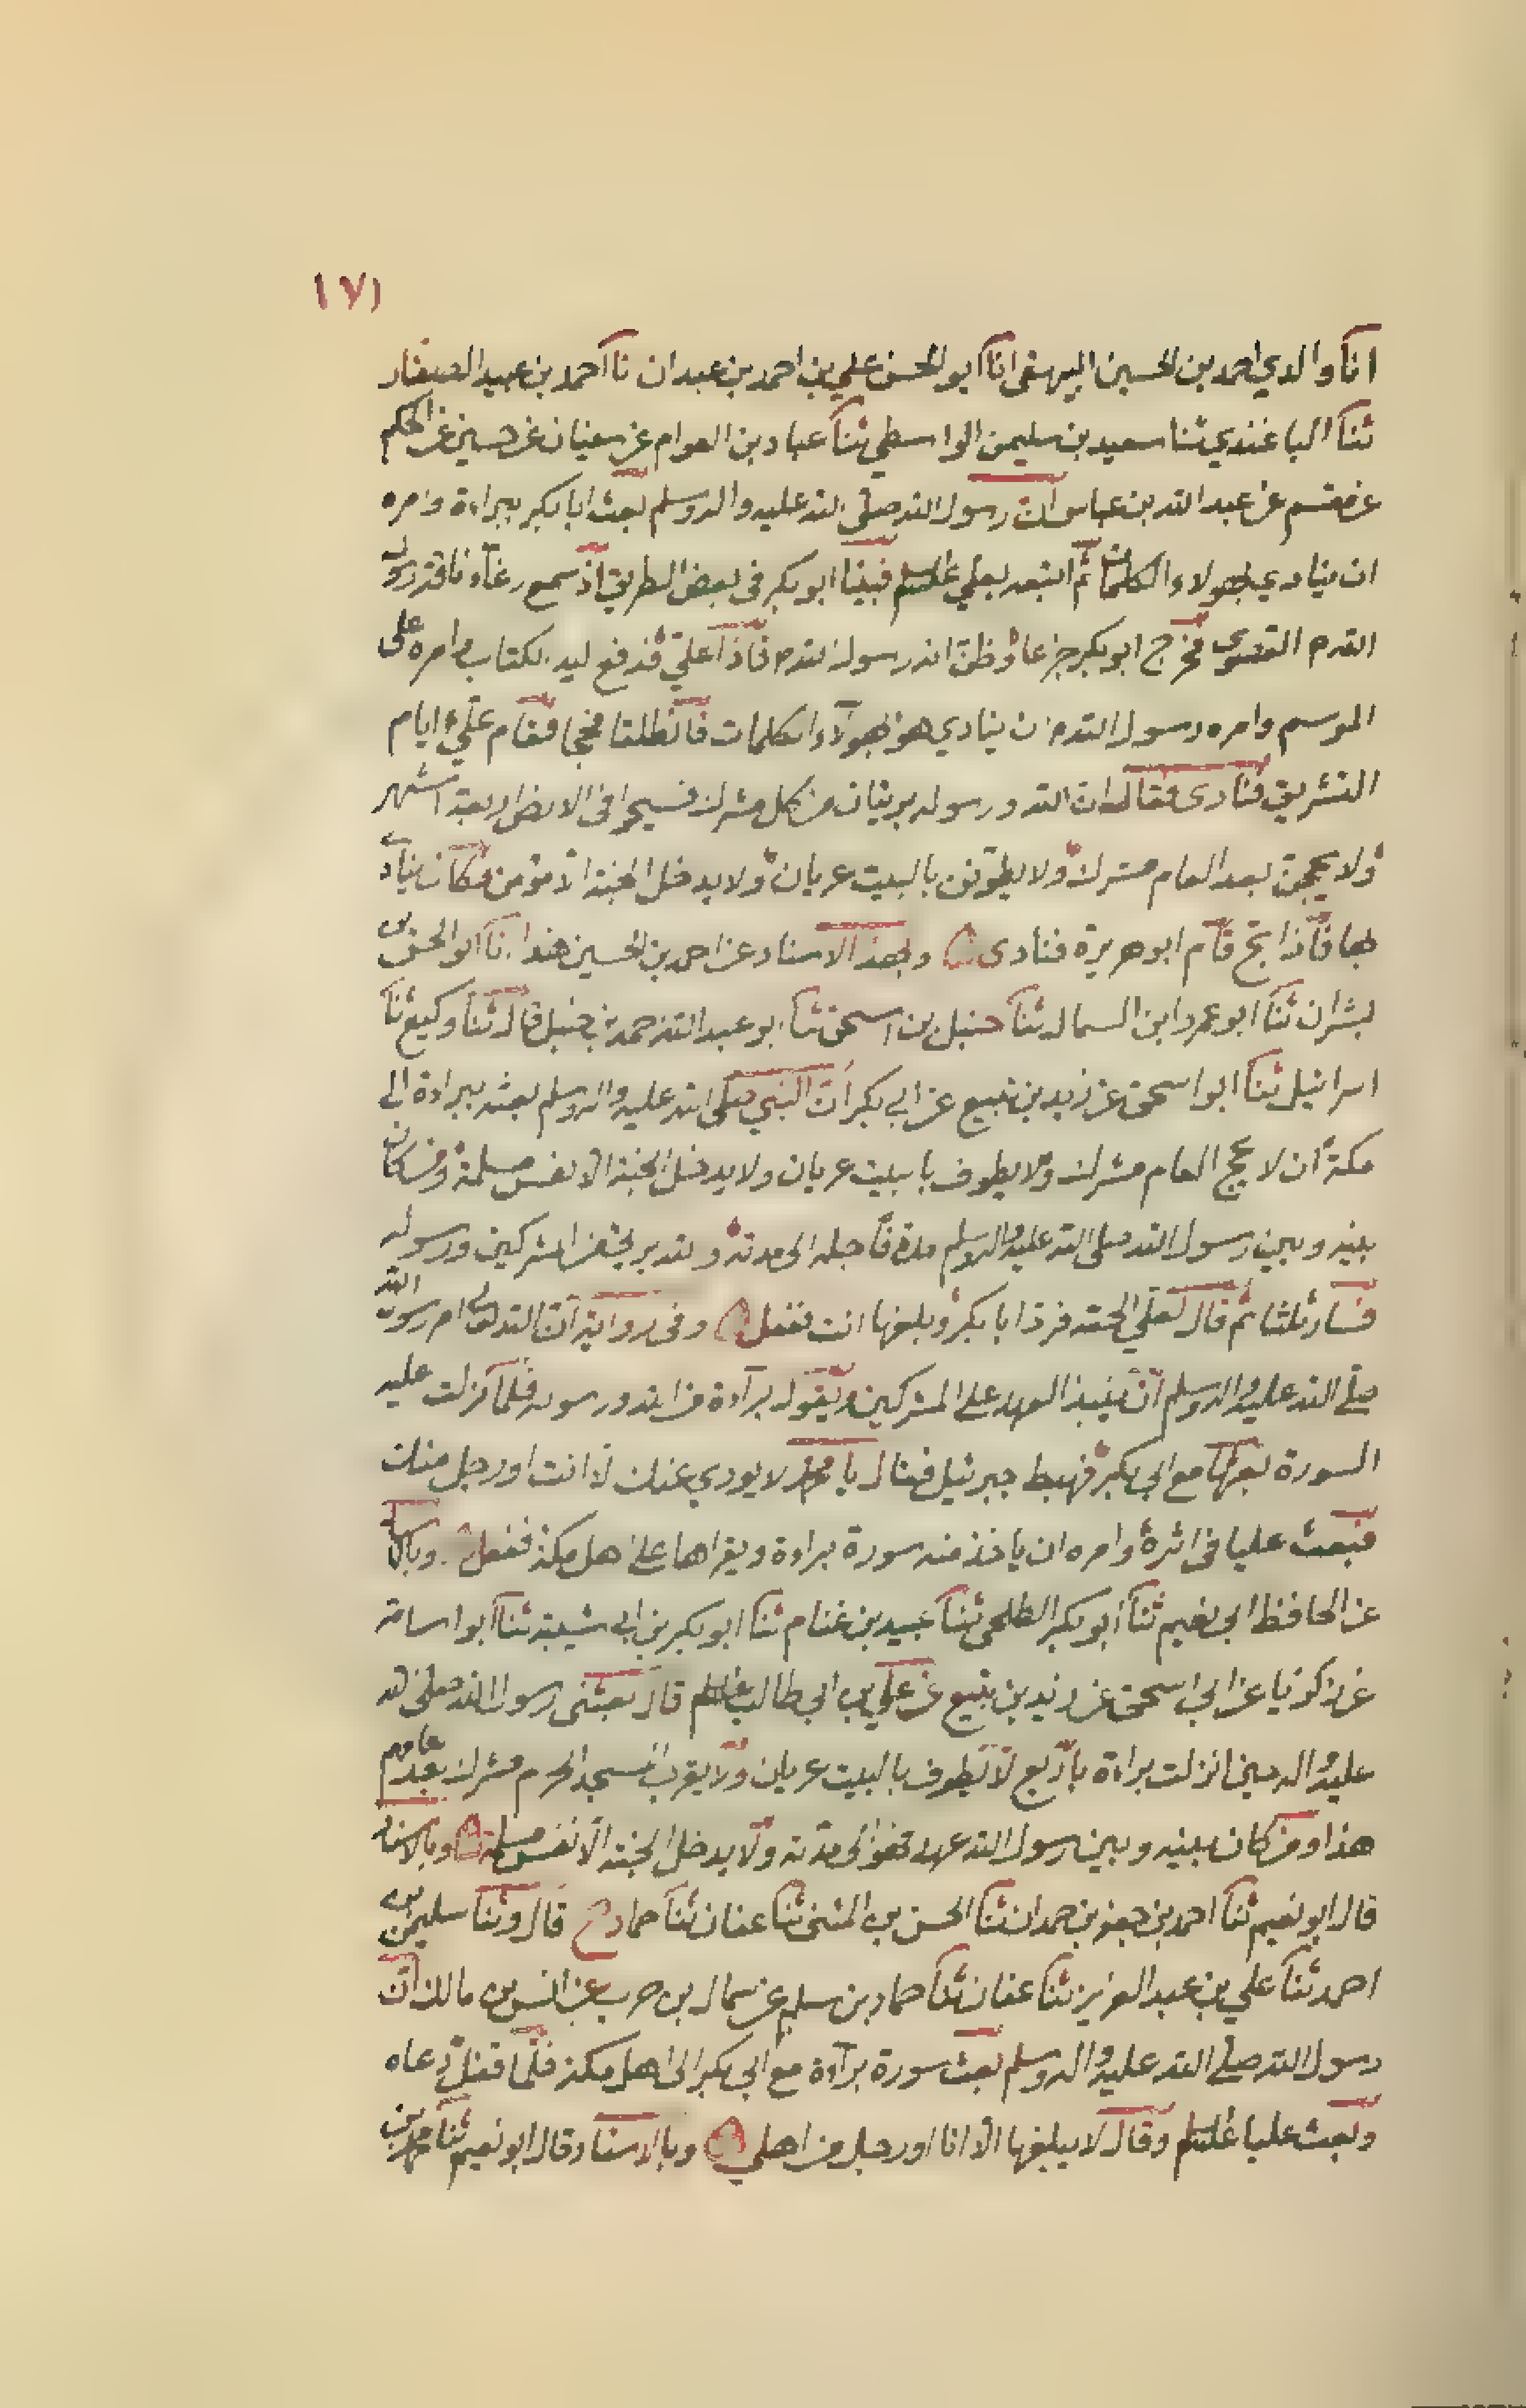 ١٧١
انا والدي احمد بن الحسين البيهقي انا ابو الحسن علي بن احمد بن عبدان نا احمد بن عبيد الصفار
ثنا الباغندي ثنا سعيد بن سليمن الواسطي ثنا عباد بن العوام عن سفيان عن حسين عن الحكم
عن مقسم عن عبد الله بن عباس ان رسول الله صلى الله عليه واله وسلم بعث ابا بكر ببراءة وامره
ان ينادي بهولاء الكلمات ثم اتبعه بعلي فبينا ابو بكر في بعض الطريق اذ سمع رغاء ناقة رسول
الله م القصوى فخرج ابو بكر جزعا وظن انه رسول الله م فاذا علي فدفع اليه الكتاب وامره على
الموسم وامره رسول الله م ان ينادي هو بهولاء الكلمات فانطلقا فحجا فقام علي ايام
التشريق فنادى فقال ان الله ورسوله بريئان من كل مشرك فسيحوا في الارض اربعة اشهر
ولا يحجن بعد العام مشرك ولا يطوفن بالبيت عريان ولا يدخل الجنة الا مؤمن فكان ينادي
بها فاذا بح قام ابو هريرة فنادى وبهذا الاسناد عن احمد بن الحسين هذا انا ابو الحسن بن
بشران ثنا ابو عمرو ابن السماك ثنا حنبل بن اسحق ثنا ابو عبد الله احمد بن حنبل قال ثنا وكيع ثنا
اسرائيل ثنا ابو اسحق عن زيد بن يثيع عن ابي بكر ان النبي صلى الله عليه واله وسلم بعثه ببراءة الى
مكة ان لا يحج العام مشرك ولا يطوف بالبيت عريان ولا يدخل الجنة الا نفس مسلمة ومن كان
بينه وبين رسول الله صلى الله عليه واله وسلم مدة فاجله الى مدته والله بريء من المشركين ورسوله
فسار ثلثا ثم قال لعلي الحقه فرد ابا بكر وبلغها انت ففعل وفي رواية ان الله تعالى امر رسول الله
صلى الله عليه واله وسلم ان ينبذ العهد على المشركين ويقول براءة من الله ورسوله فلما نزلت عليه
السورة بعثها مع ابي بكر فهبط جبرئيل فقال يا محمد لا يودي عنك الا انت او رجل منك
فبعث عليا في اثره وامره ان ياخذ منه سورة براءة ويقراها على اهل مكة ففعل وبالاسناد
عن الحافظ ابي نعيم ثنا ابو بكر الطلحي ثنا عبيد بن غنام ثنا ابو بكر بن ابي شيبة ثنا ابو اسامة
عن زكريا عن ابي اسحق عن زيد بن يثيع عن علي بن ابي طالب قال بعثني رسول الله صلى الله
عليه واله حين انزلت براءة باربع لا يطوف بالبيت عريان ولا يقرب المسجد الحرم مشرك بعد عامهم
هذا ومن كان بينه وبين رسول الله عهد فهو الى مدته ولا يدخل الجنة الا نفس مسلمة وبالاسناد
قال ابو نعيم ثنا احمد بن جعفر بن حمدان ثنا الحسن بن المثنى ثنا عفان ثنا حماد ح قال وثنا سليمن بن
احمد ثنا علي بن عبد العزيز ثنا عفان ثنا حماد بن سلم عن سماك بن حرب عن انس بن مالك ان
رسول الله صلى الله عليه واله وسلم بعث سورة براءة مع ابي بكر الى اهل مكة فلما قفل دعاه
وبعث عليا وقال لا يبلغها الا انا او رجل من اهلي وبالاسناد قال ابو نعيم ثنا محمد بن